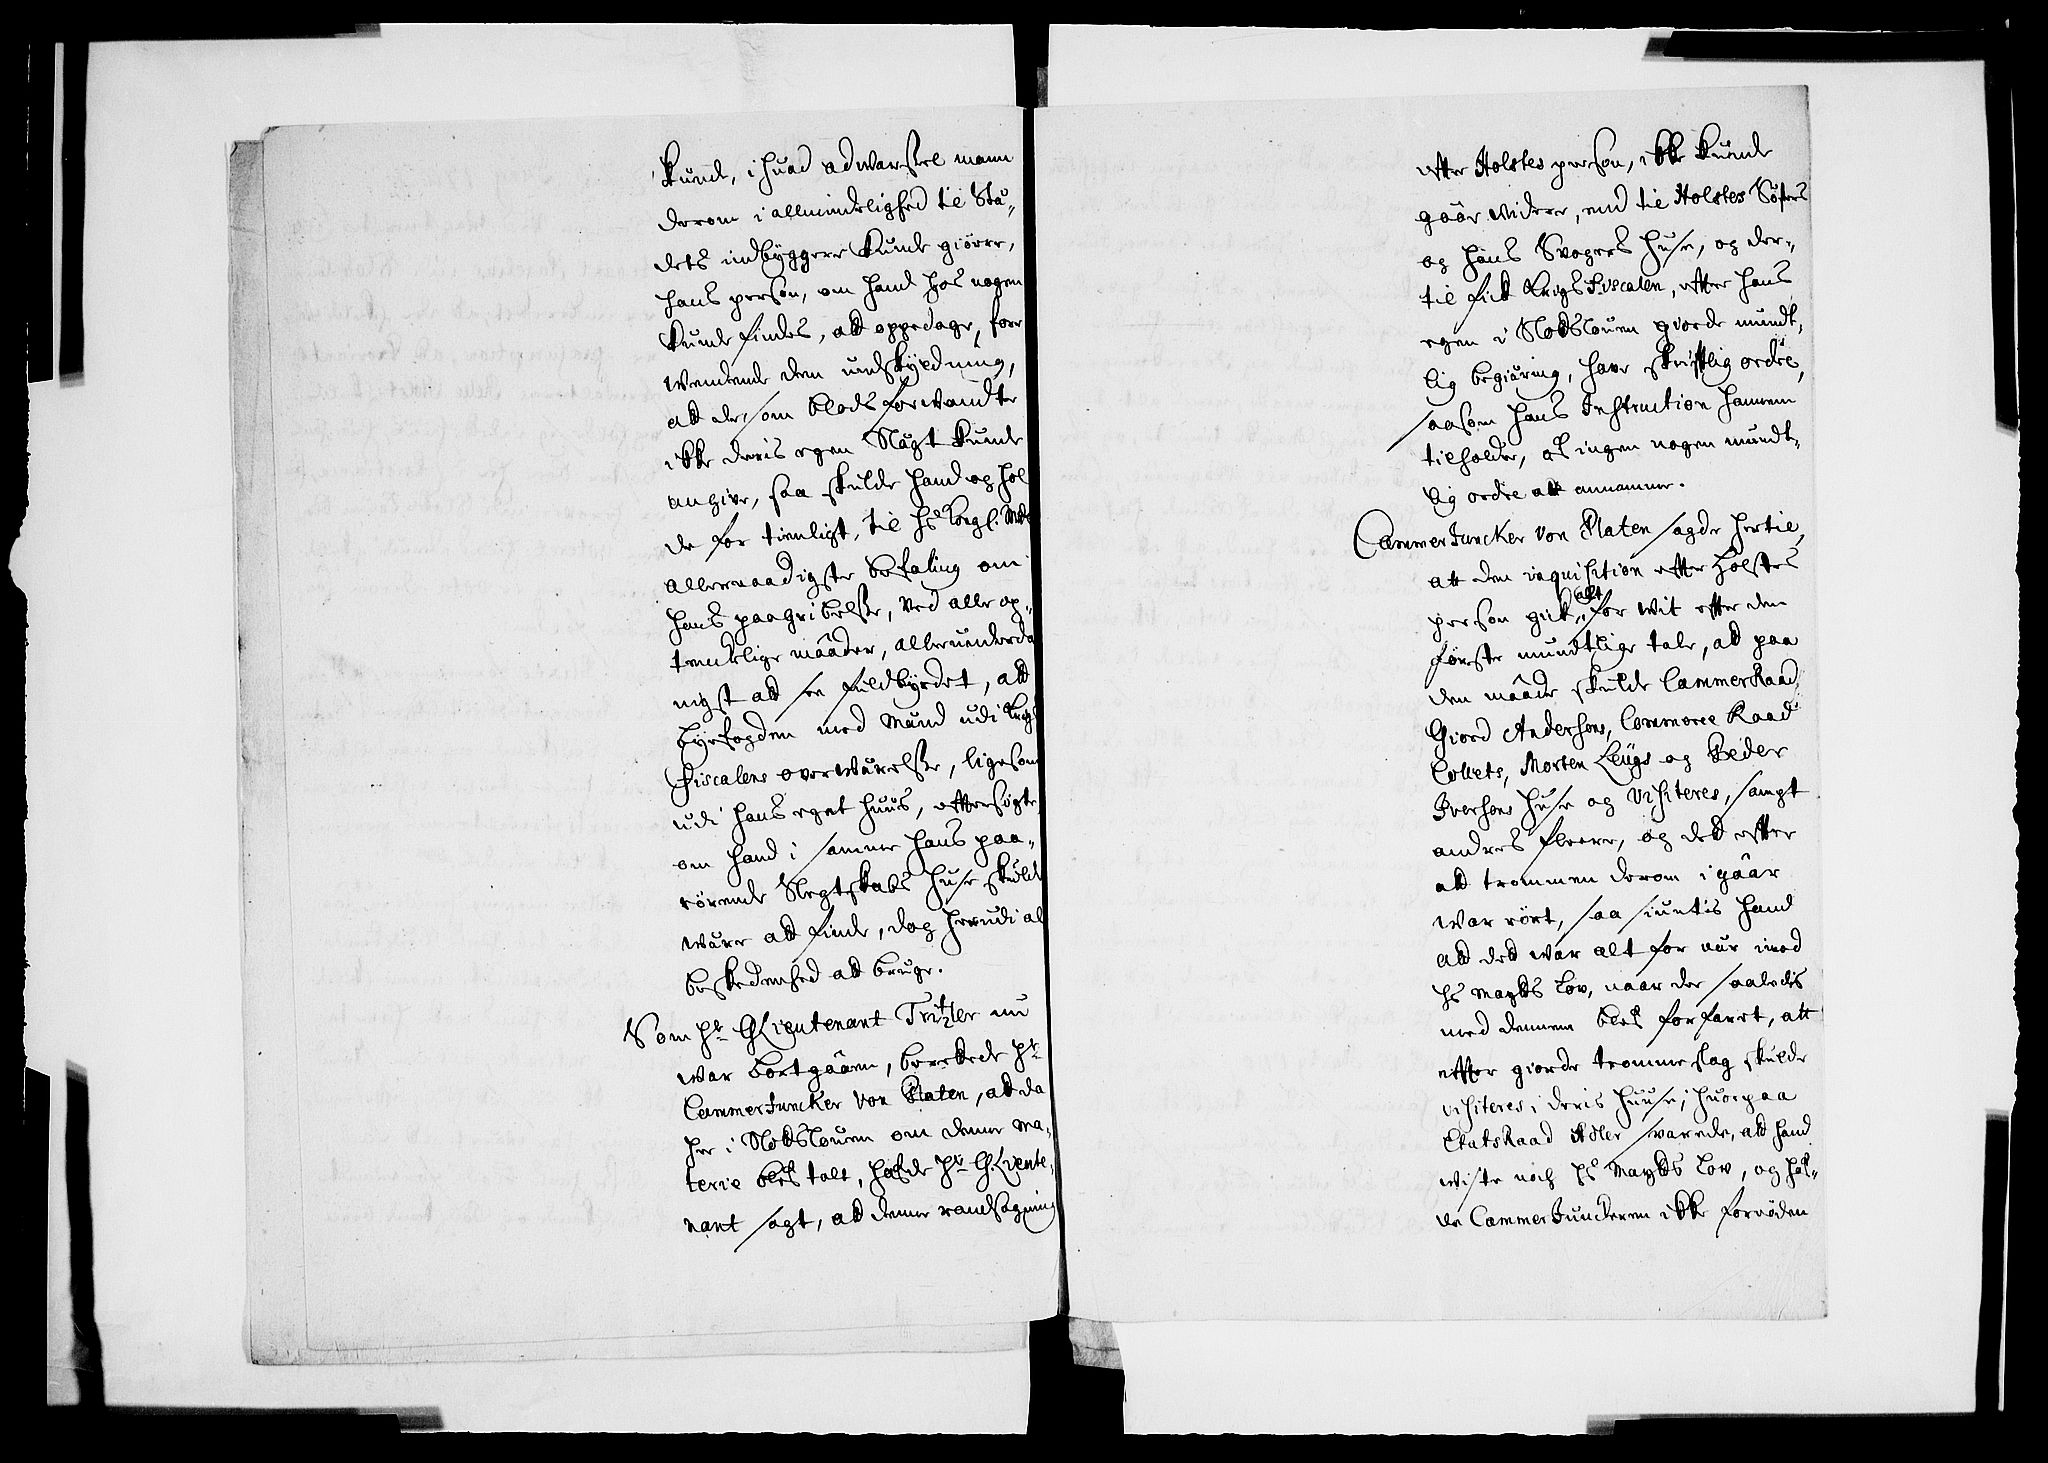 kunde, i huad adwarsel mann
derom i allmindelighed til Stä„
dets indbyggere kunde giörre,
hans person, om hand hos nogen
kunde findes, att oppedage, fore
wendende den undskyldning,
att de som blods forwandte
ikke deris egen Slägt kunde
angive, saa skulde hand og hol
de for tienligt, til hs kongl. Mts
allernaadigste befaling om
hans paagribelsse, ved alle op„
tenckelige måader, allerunderda
nigst att see fuldbyrdet, att
byefogden med Mænd udi Krigs
Fiscalens overwärelsse, ligesom
udi hans eget huus, eftersögte,
om hand i samme hans paa„
rörende Slegtskabs huse skulde
wäre att finde, dog herudi al
beskedenhed att bruge.
Som hr. ObLieutenant Tritzler nu
war bortgåaen, berettede hr.
CammerJuncker von Platen, att da
her i Slotslouen om denne Ma„
terie blef talt, hafde hr. ObLieute„
nant sagt, att denne randsagning
efter Holstes person, ikke kunde
gåar videre, end til Holstes Söster
og hans Svogers huse, og der„
til fick KrigsFiscalen, efter hans
egen i Slotslouen giorde mundt„
lig begiäring, have skriftlig ordre,
saasom hans Instruction hannem
tilholder, af ingen nogen mundt„
lig ordre att annamme.
CammerJuncker von Platen sagde hertil,
att den inquisition efter Holstes
person gick allt for wit efter den
förste mundtlige tale, att paa
den måade skulde CammerRaad
Giord Andersens, Commerce Raad
Collets, Morten Leugs og Peder
Iversens huse og visiteres, sampt
andres fleere, og det efter
att trommen derom igåar
war rört, saa siuntis hand
att det war alt for när imod
hs Mayts Lov, naar der saaledis
med dennem blef forfaret, att
effter giorde trommeslag skulde
visiteres i deris huuse; huorpaa
EtatsRaad Adler svarede, att hand
wiste noch hs Mayts Lov, og haf„
de CammerJunckeren ikke fornöden